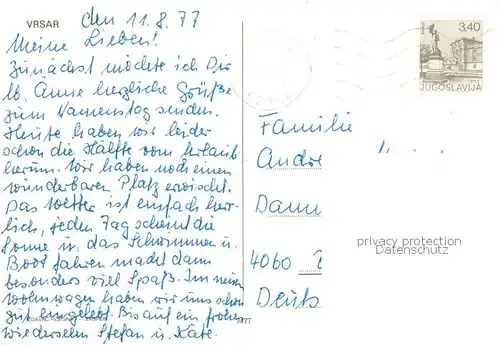 VRSAR
den 11.8.77
Meine Lieben!
Zunächst möchte ich Dir
lb. Änne herzliche Grüße
zum Namenstag senden.
Heute haben wir leider
schon die Hälfte vom Urlaub
herum. Wir haben noch einen
wunderbaren Platz erwischt.
Das Wetter ist einfach herr-
lich, jeden Tag scheint die
Sonne u. das Schwimmen u.
Boot fahren macht dann
besonders viel Spaß. Im neuen
Wohnwagen haben wir uns schon
gut eingelebt. Bis auf ein frohes
Wiedersehn Stefan u. Käte.
3,40
JUGOSLAVIJA
Familie
Andre
Damm
privacy protection
Datenschutz
4060
Deuts